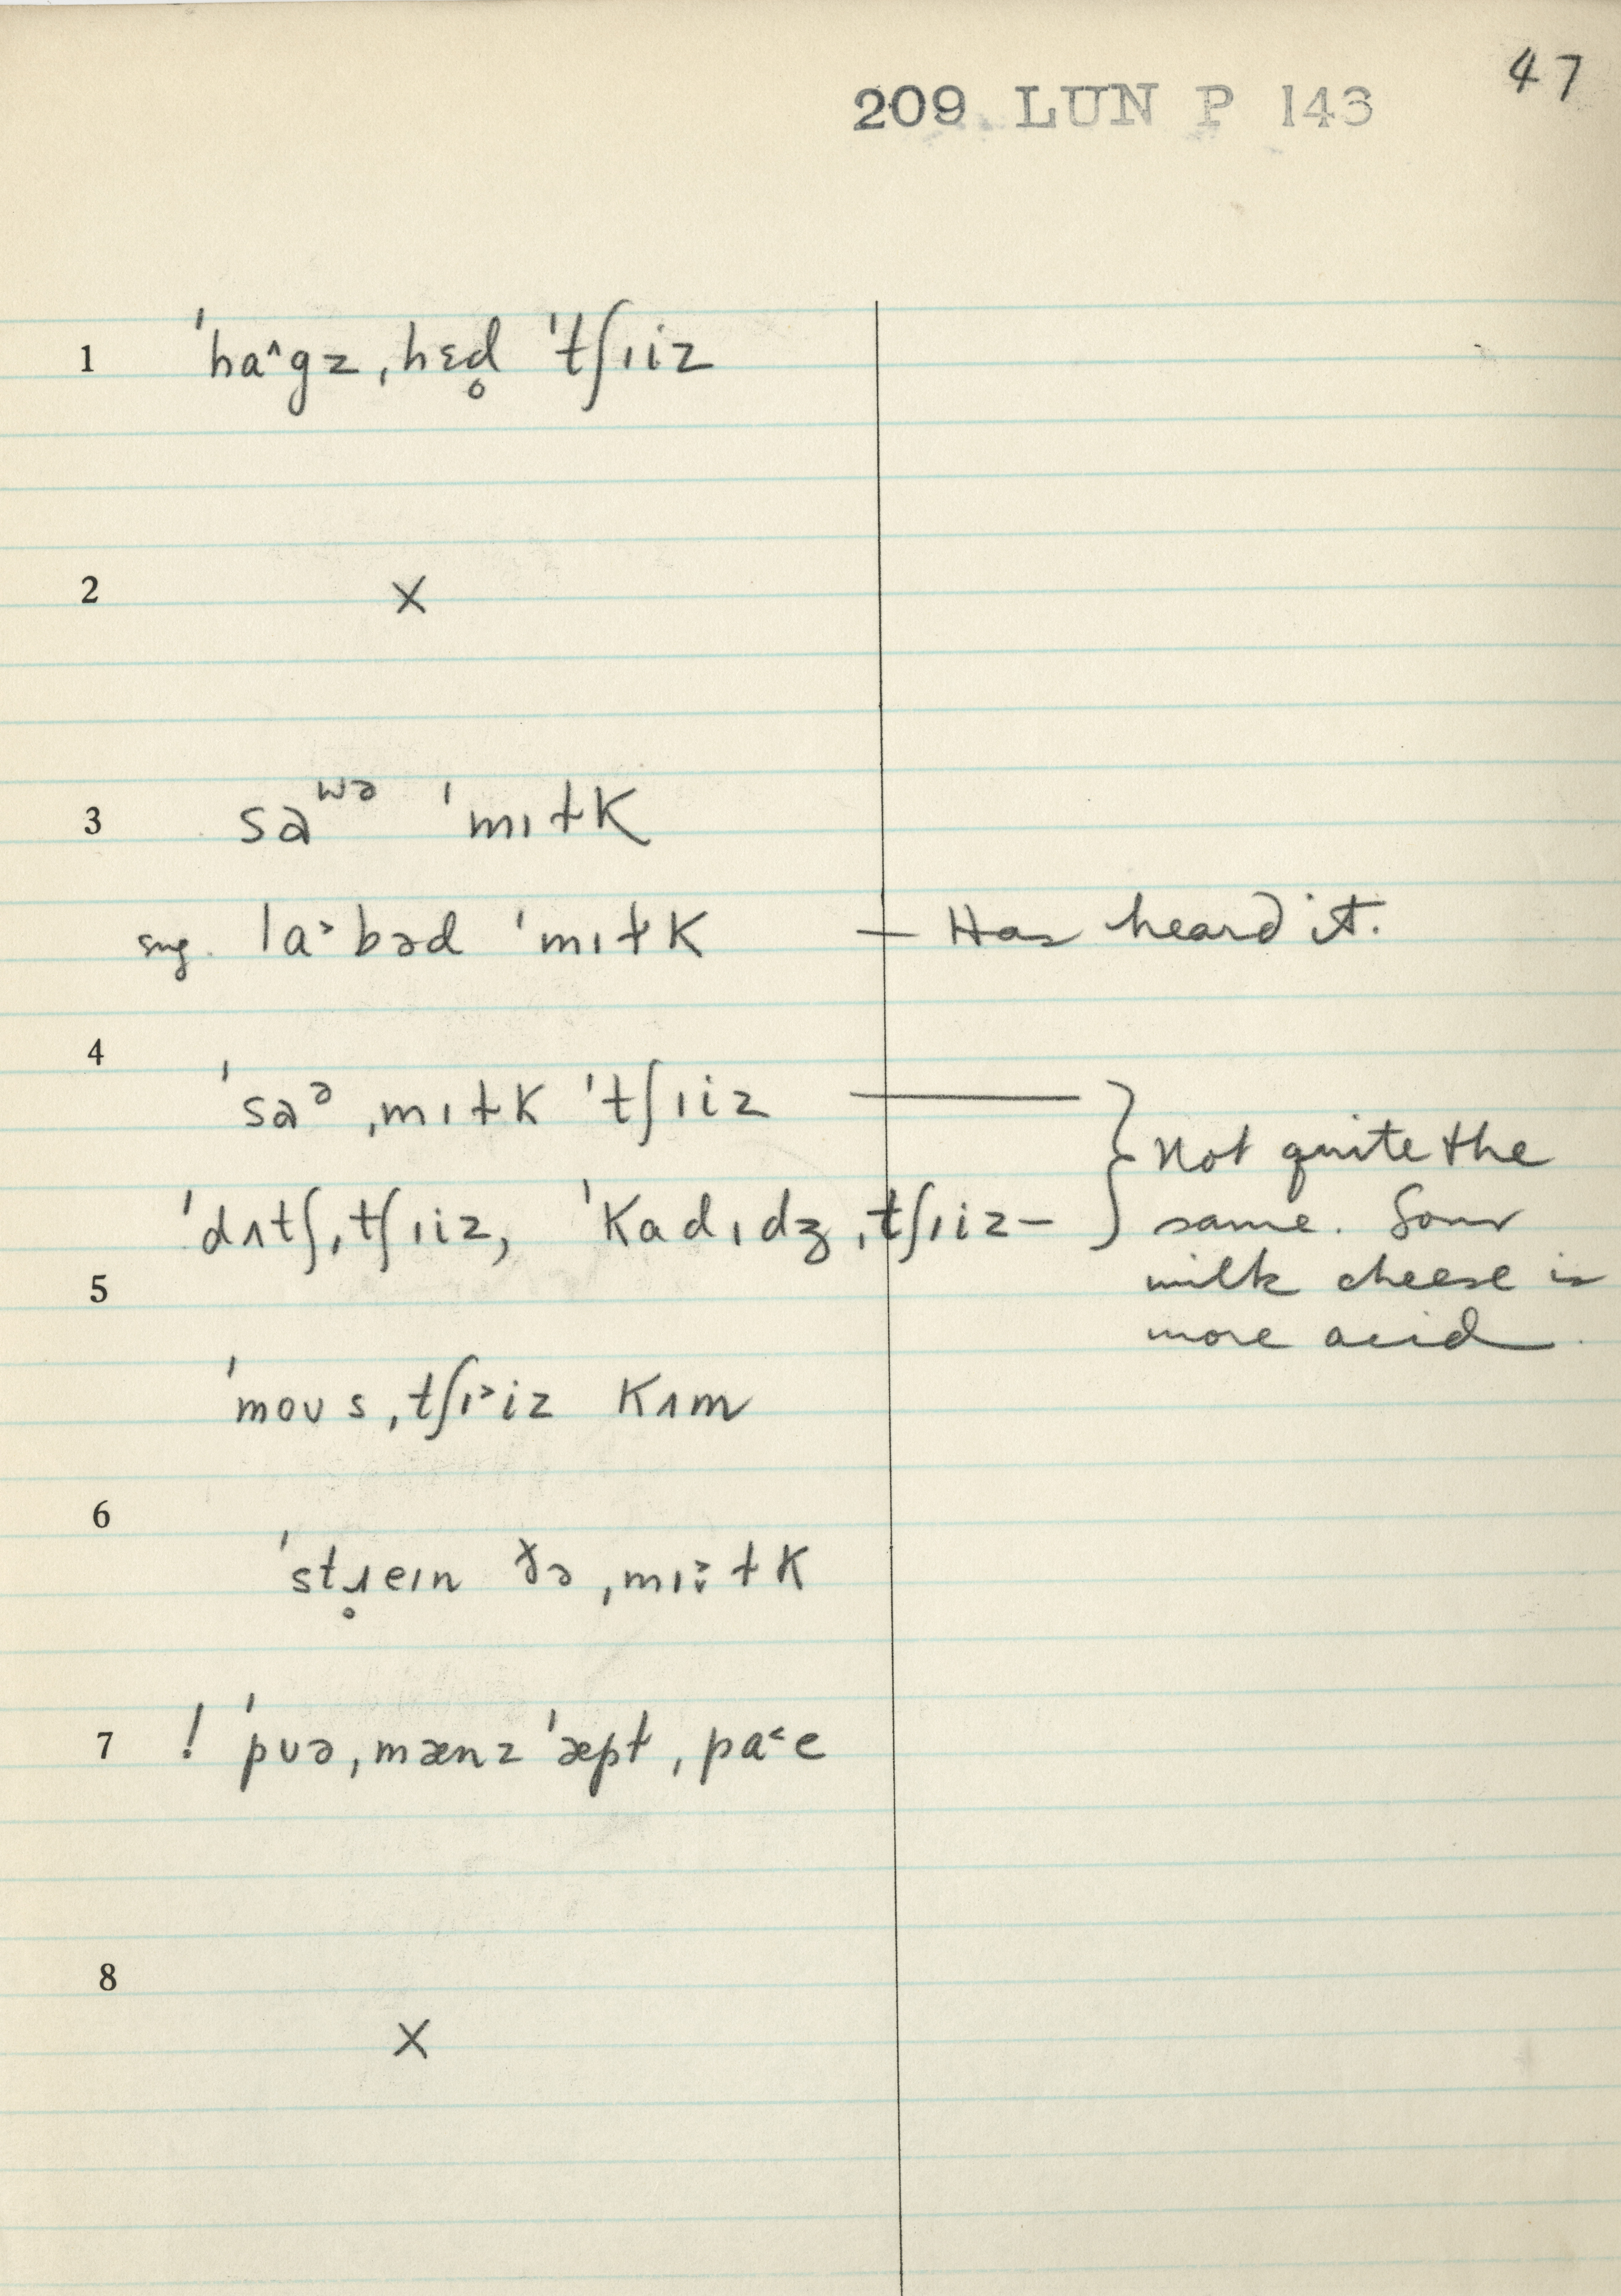 47
209 LUN P 143
1 ˈhaˆgz ˌhɛd̥ ˈtʃɪiz
2 ×
3 saʷᵊ ˈmɪɫk
sug. lɑ˃bəd ˈmɪɫk — Has heard it.
4
ˈsaᵊ ˌmɪɫk ˈtʃɪiz ——— }
ˈdʌtʃ ˌtʃɪiz, ˈkadɪdʒ ˌtʃɪiz — } Not quite the
same. Sour
milk cheese is
more acid
5
ˈmoʊs ˌtʃɪ˃iz kʌm
6
ˈstɹ̥eɪn ðə ˌmɪ˃̬ɫk
7 ! ˈpʊə ˌmænz ˈæpɫ ˌpa˂e
8
×